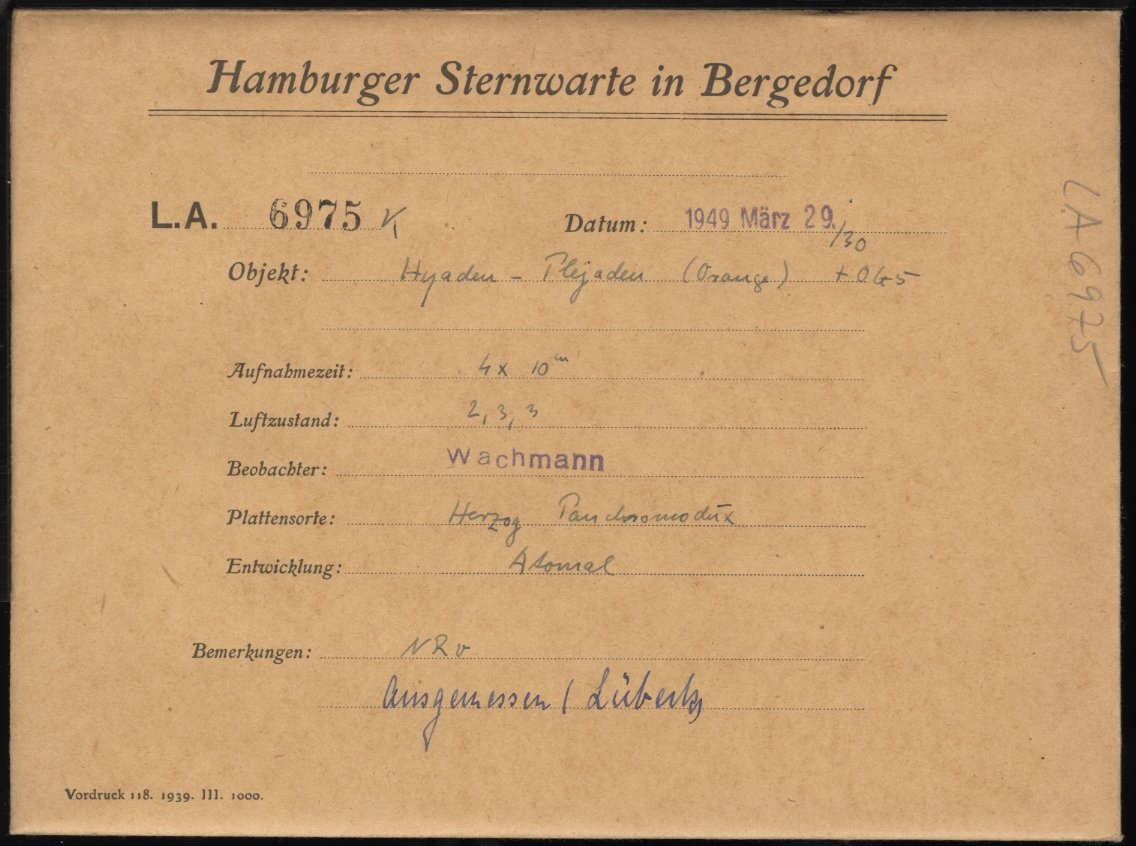 Hamburger Sternwarte in Bergedorf
L.A. 6975 K Datum: 1949 März 29./30
Objekt: Hyaden – Plejaden (Orange) + OG5
Aufnahmezeit: 4 x 10m
Luftzustand: 2, 3, 3
Beobachter: Wachmann
Plattensorte: Herzog Panchromodux
Entwicklung: Atomal
Bemerkungen: NR
Ausgemessen / Lübeck
Vordruck 118. 1939. III. 1000.
LA 6975